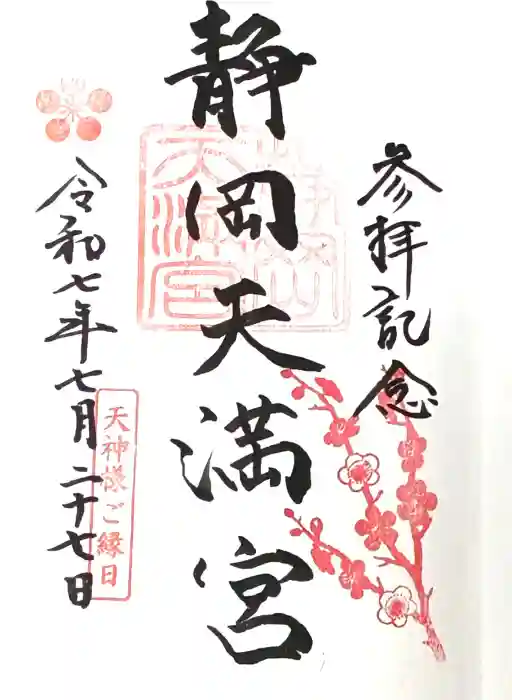 参拝記念
静岡天満宮
静岡天満宮
令和七年七月二十七日
天神様ご縁日